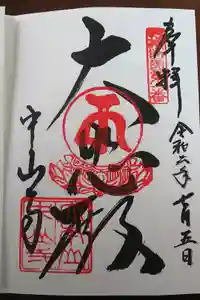 奉拝
令和六年七月五日
大悲殿
中山寺